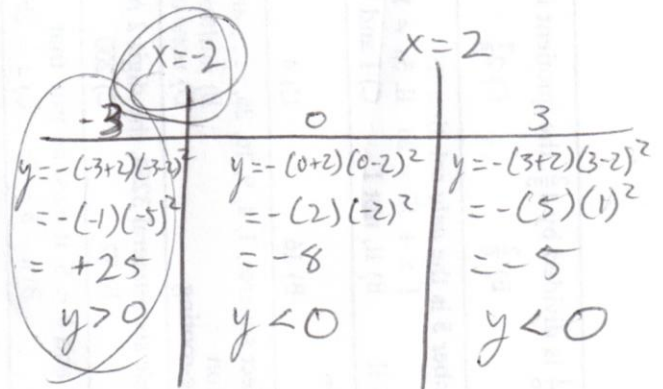 x=-2 x=2
-3 0 3
y=-(-3+2)(-3-2)² y=-(0+2)(0-2)² y=-(3+2)(3-2)²
=-(-1)(-5)² =-(2)(-2)² =-(5)(1)²
= +25 =-8 =-5
y>0 y<0 y<0